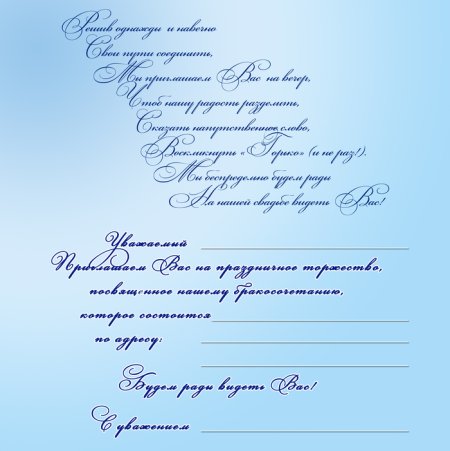 Решив однажды и навечно
Свои пути соединить,
Мы приглашаем Вас на вечер,
Чтоб нашу радость разделить,
Сказать напутственное слово,
Воскликнуть «Горько» (и не раз!).
Мы беспредельно будем рады
На нашей свадьбе видеть Вас!
Уважаемый
Приглашаем Вас на праздничное торжество,
посвящённое нашему бракосочетанию,
которое состоится
по адресу:
Будем рады видеть Вас!
С уважением